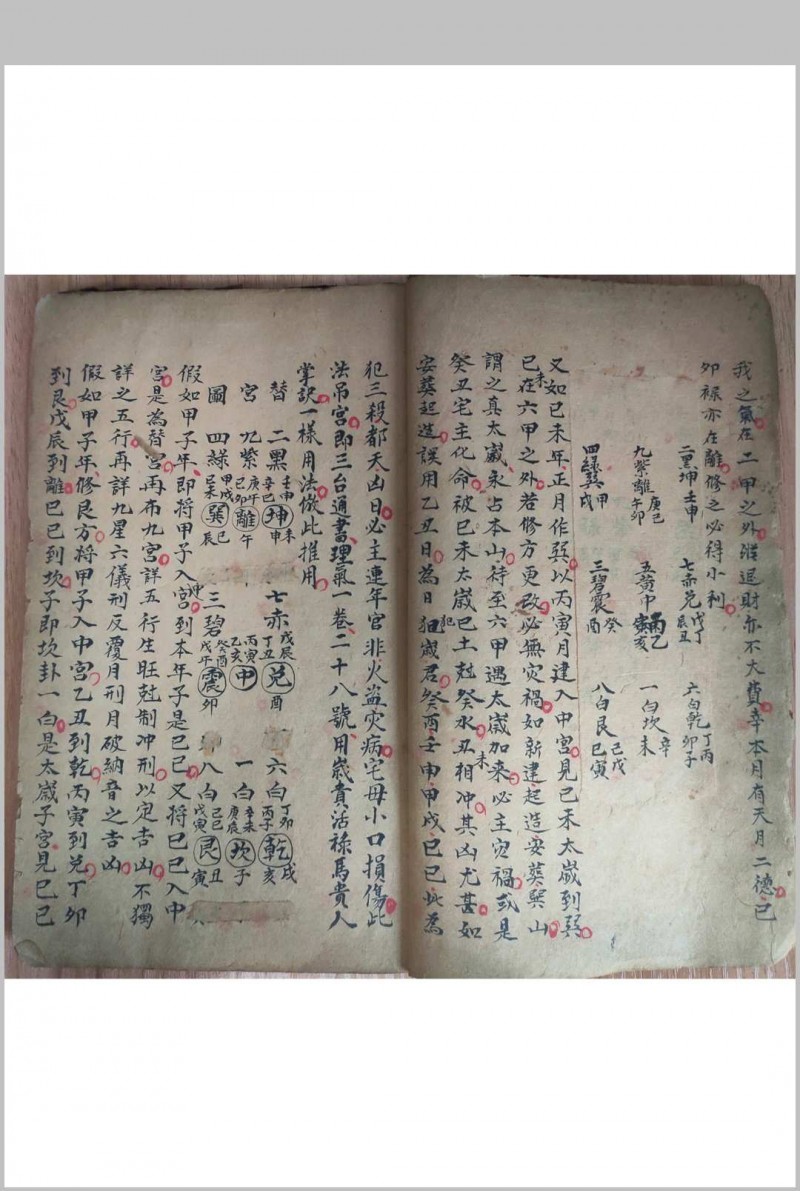 我之氣在二甲之外。治退財亦不大費。辛本月有天月二德。己
卯祿亦在離。修之必得小利。
二黑坤 壬申 七赤兌 戊丁 辰丑 六白乾 丁丙 卯子
九紫離 庚己 午卯 五黃中 丙乙 寅亥 一白坎 辛未
四綠巽 甲戌 三碧震 癸酉 八白艮 己戊 巳寅
又如己未年。正月作巽。以丙寅月建入中宮。見己未太歲到巽。
己未在六甲之外。若修方更改。必無灾禍。如新建起造安葬巽山。
謂之真太歲。永占本山。待至六甲遇太歲加来。必主灾禍。或是
癸丑宅主化命。被己未太歲巳土尅癸水。丑未相冲。其凶尤甚。如
安葬起造。誤用乙丑日。為日犯歲君。癸酉壬申甲戌己巳此為
犯三殺都天凶日。必主連年官非火盜灾病。宅母小口損傷。此
法吊宮。即三台通書。理氣一卷。二十八號。用歲貴活祿馬貴人
掌訣。一樣用法。倣此推用。
替 二黑 壬申 辛巳 坤 未申 七赤 戊辰 丁丑 兌 酉 六白 丁卯 丙子 乾 戌亥
宮 九紫 庚午 己卯 離 午 丙寅 乙亥 中 一白 辛未 庚辰 坎 子
圖 四綠 甲戌 己未 巽 巳辰 三碧 癸酉 戊午 震 卯 八白 己巳 戊寅 艮 丑寅
假如甲子年。即將甲子入中宮。到本年子是己巳。又將己巳入中
宮。是為替宮。再布九宮。詳五行生旺尅制冲刑。以定吉凶。不獨
詳之五行。再詳九星六儀刑反覆月刑月破納音之吉凶。
假如甲子年。修艮方。將甲子入中宮。乙丑到乾。丙寅到兌。丁卯
到艮。戊辰到離。己巳到坎。子即坎卦一白。是太歲子宮。見己巳